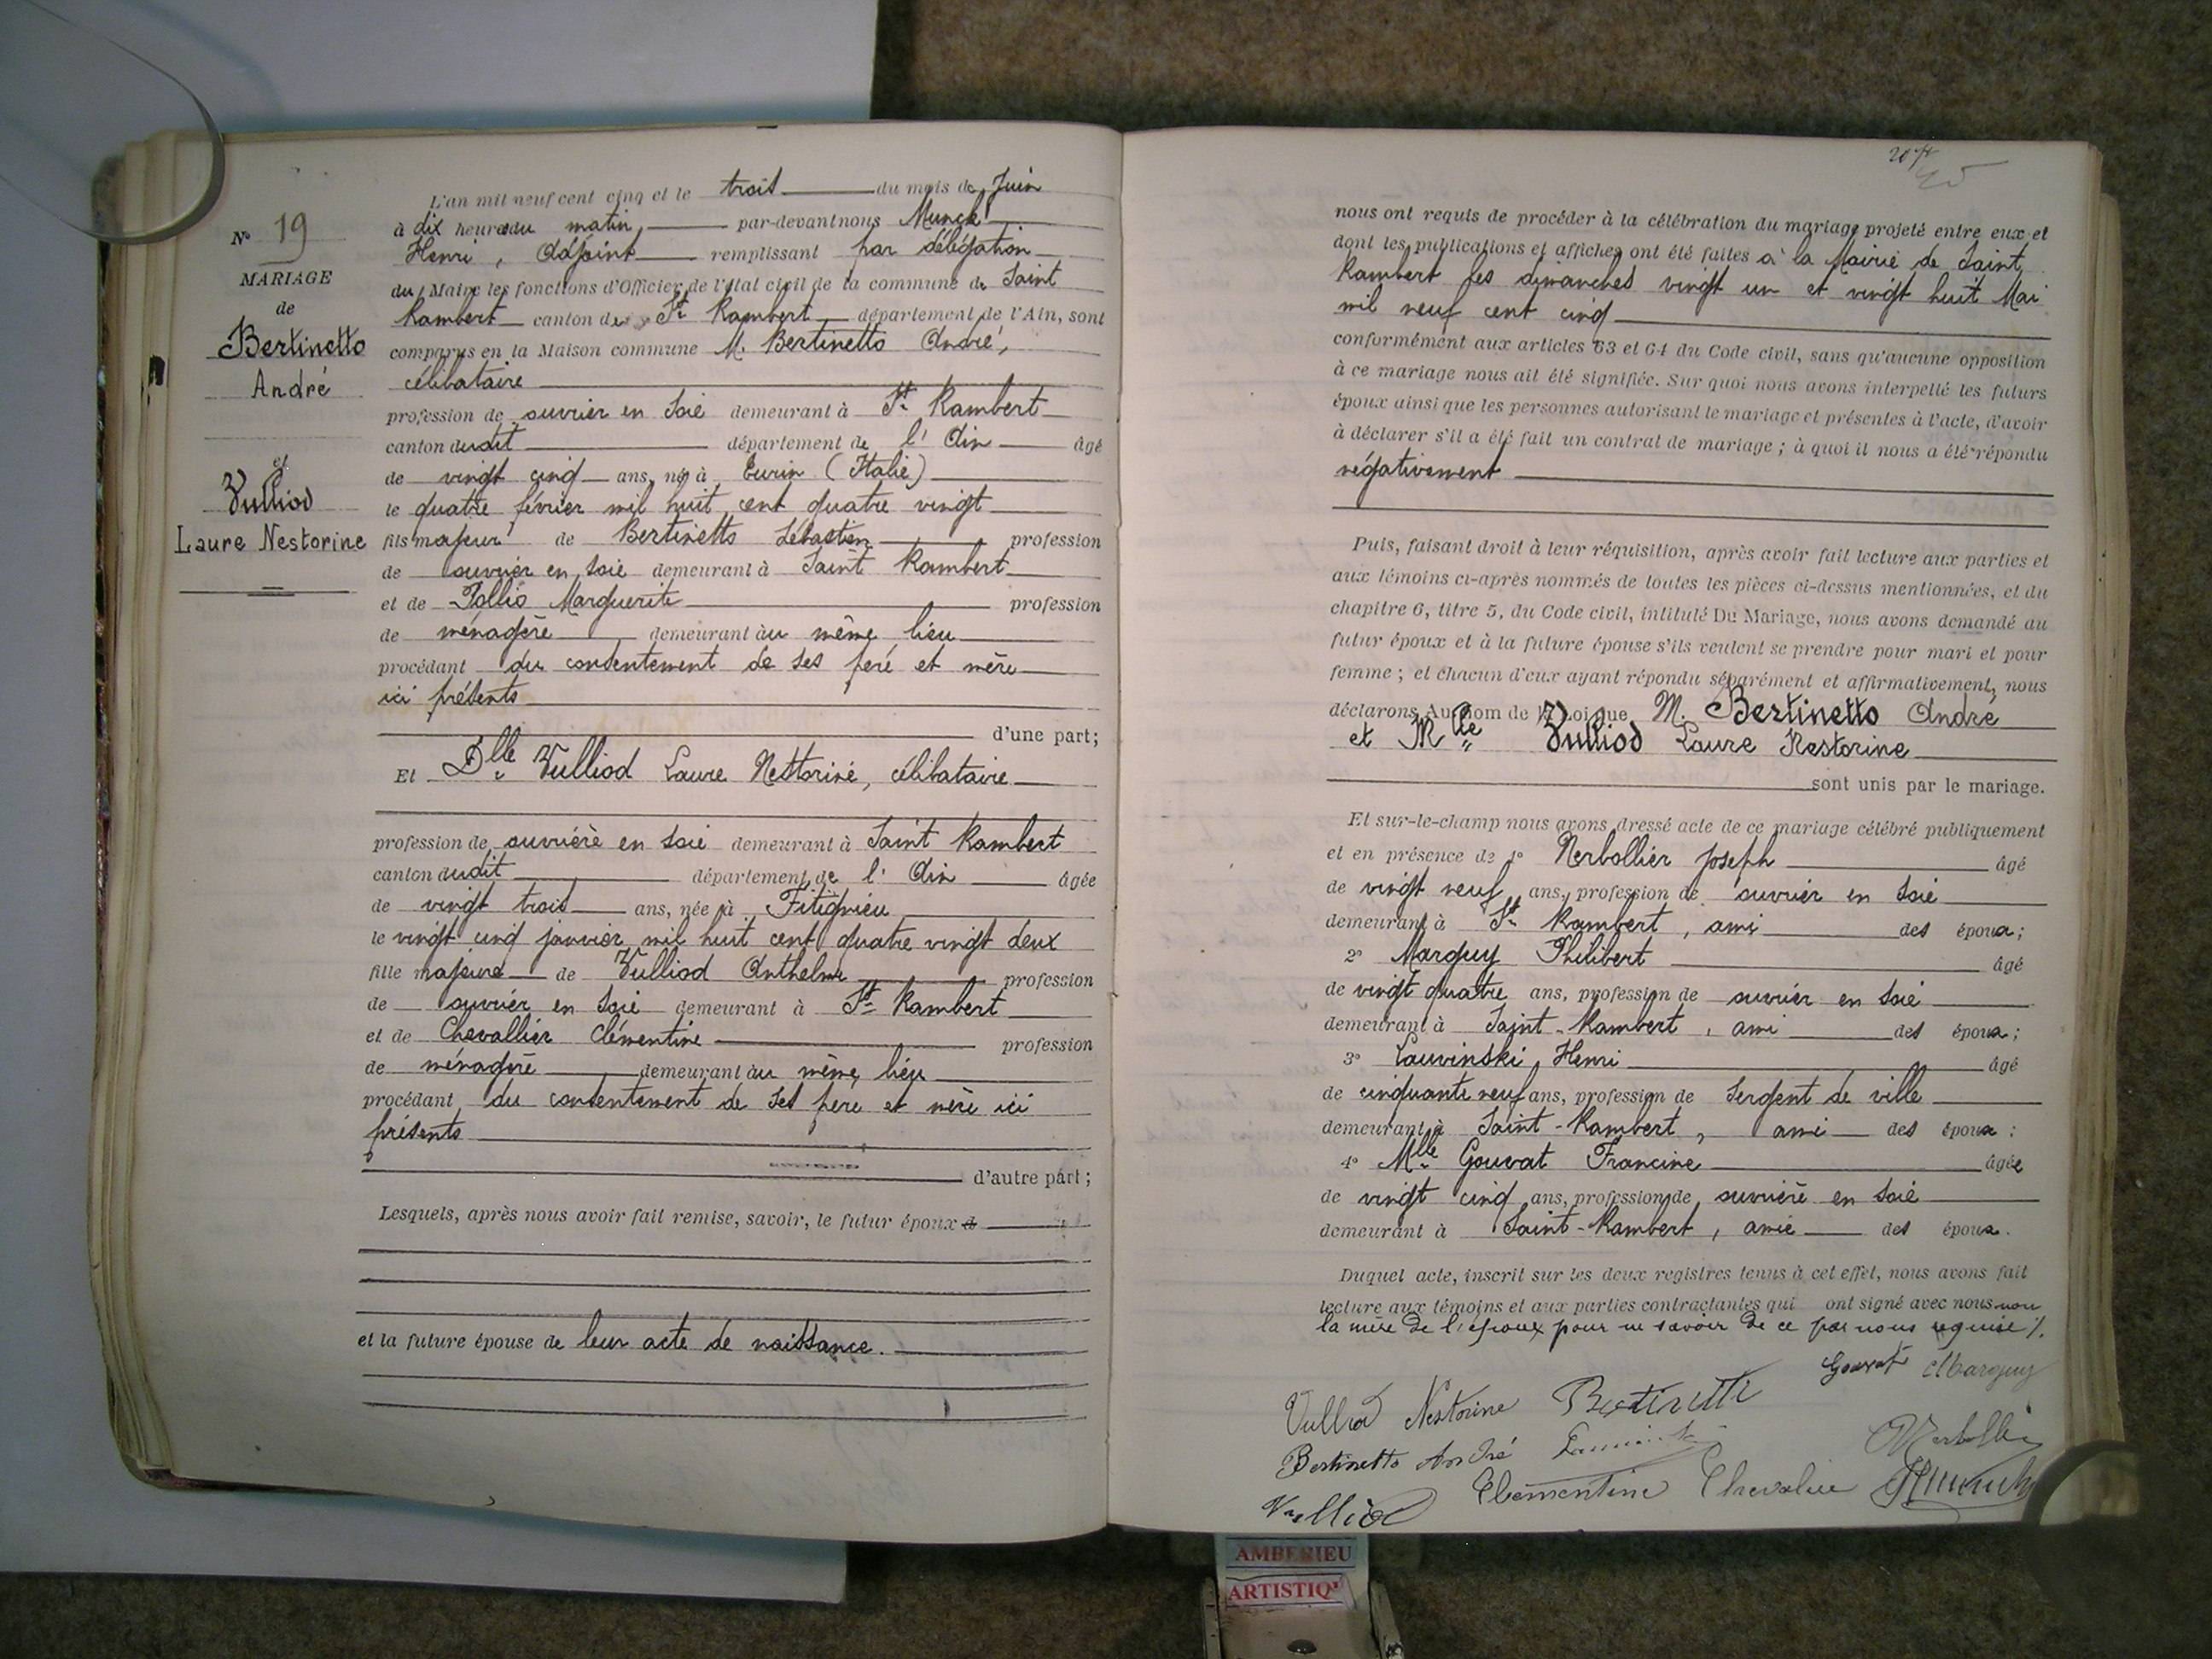 N° 19
MARIAGE
de
Bertinetto
André
et
Vulliod
Laure Nestorine
L'an mil neuf cent cinq et le trois du mois de Juin
à dix heures du matin, par-devant nous Munch
Henri, Adjoint remplissant par délégation
du Maire les fonctions d'Officier de l'état civil de la commune de Saint
Rambert canton de St Rambert département de l'Ain, sont
comparus en la Maison commune M. Bertinetto André,
célibataire
profession de ouvrier en soie demeurant à St Rambert
canton dudit département de l'Ain âgé
de vingt cinq ans, né à Turin (Italie)
le quatre février mil huit cent quatre vingt
fils majeur de Bertinetto Sébastien profession
de ouvrier en soie demeurant à Saint Rambert
et de Marguerite profession
de ménagère demeurant au même lieu
procédant du consentement de ses père et mère
ici présents
d'une part;
Et Dlle Vulliod Laure Nestorine, célibataire
profession de ouvrière en soie demeurant à Saint Rambert
canton dudit département de l'Ain âgée
de vingt trois ans, née à Fitignieu
le vingt cinq janvier mil huit cent quatre vingt deux
fille majeure de Vulliod Anthelme profession
de ouvrier en soie demeurant à St Rambert
et de Chevallier Clémentine profession
de ménagère demeurant au même lieu
procédant du consentement de ses père et mère ici
présents
d'autre part;
Lesquels, après nous avoir fait remise, savoir, le futur époux d
et la future épouse de leur acte de naissance.
nous ont requis de procéder à la célébration du mariage projeté entre eux et
dont les publications et affiches ont été faites à la Mairie de Saint
Rambert les dimanches vingt un et vingt huit Mai
mil neuf cent cinq
conformément aux articles 63 et 64 du Code civil, sans qu'aucune opposition
à ce mariage nous ait été signifiée. Sur quoi nous avons interpellé les futurs
époux ainsi que les personnes autorisant le mariage et présentes à l'acte, d'avoir
à déclarer s'il a été fait un contrat de mariage; à quoi il nous a été répondu
négativement
Puis, faisant droit à leur réquisition, après avoir fait lecture aux parties et
aux témoins ci-après nommés de toutes les pièces ci-dessus mentionnées, et du
chapitre 6, titre 5, du Code civil, intitulé Du Mariage, nous avons demandé au
futur époux et à la future épouse s'ils veulent se prendre pour mari et pour
femme; et chacun d'eux ayant répondu séparément et affirmativement, nous
déclarons Au Nom de la Loi que M. Bertinetto André
et Mlle Vulliod Laure Nestorine
sont unis par le mariage.
Et sur-le-champ nous avons dressé acte de ce mariage célébré publiquement
et en présence de 1° Nerbollier Joseph âgé
de vingt neuf ans, profession de ouvrier en soie
demeurant à St Rambert, ami des époux;
2° Marguy Philibert âgé
de vingt quatre ans, profession de ouvrier en soie
demeurant à Saint-Rambert, ami des époux;
3° Lauvinski Henri âgé
de cinquante neuf ans, profession de sergent de ville
demeurant à Saint-Rambert, ami des époux;
4° Mlle Gouvat Francine âgée
de vingt cinq ans, profession de ouvrière en soie
demeurant à Saint-Rambert, amie des époux.
Duquel acte, inscrit sur les deux registres tenus à cet effet, nous avons fait
lecture aux témoins et aux parties contractantes qui ont signé avec nous non
la mère de l'époux pour ne savoir de ce par nous requise %.
Gouvat Marguy
Vulliod Nestorine Bertinetti
Bertinetto André
Clémentine Chevalier
Vulliod
AMBERIEU
ARTISTIQ